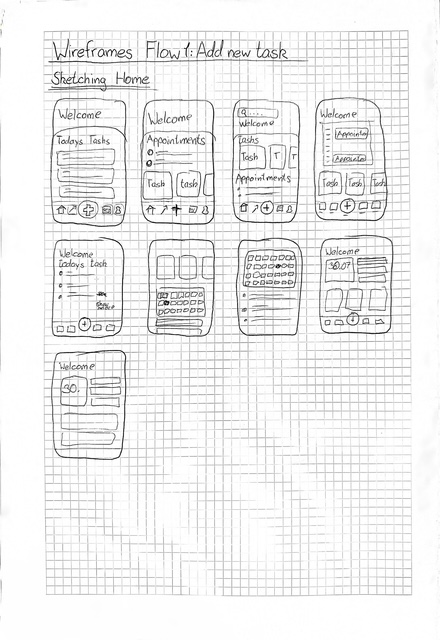 Wireframes Flow 1: Add new task
Sketching Home
Welcome
Todays Tasks
Welcome
Appointments
Task
Task
Welcome
Tasks
Task
T
T
Appointments
Welcome
Appointm
Appointm
Task
Task
Task
Welcome
Todays task
Welcome
30.07
Welcome
30.